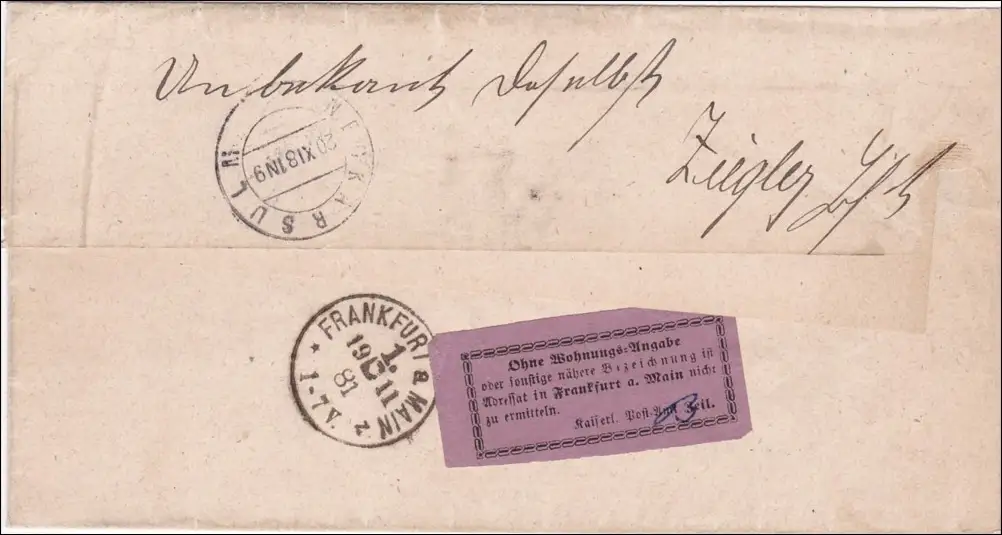 Unbekant daselbst
Ziegler
NECKARSULM
20 XI 81 N 9
FRANKFURT a. MAIN 2
1.
19 11
81
1-2 V.
Ohne Wohnungs-Angabe
oder sonstige nähere Bezeichnung ist
Adressat in Frankfurt a. Main nicht
zu ermitteln.
Kaiserl. Post-Amt Zeil.